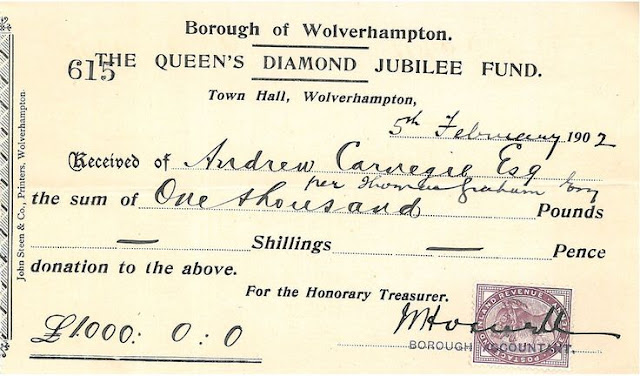 Borough of Wolverhampton.
615
THE QUEEN'S DIAMOND JUBILEE FUND.
Town Hall, Wolverhampton,
5th February 1902
Received of Andrew Carnegie Esq
per Thomas Graham Esq
the sum of One thousand Pounds
— Shillings — Pence
donation to the above.
For the Honorary Treasurer.
£1000: 0: 0
BOROUGH ACCOUNTANT.
POSTAGE AND INLAND REVENUE
John Steen & Co., Printers, Wolverhampton.